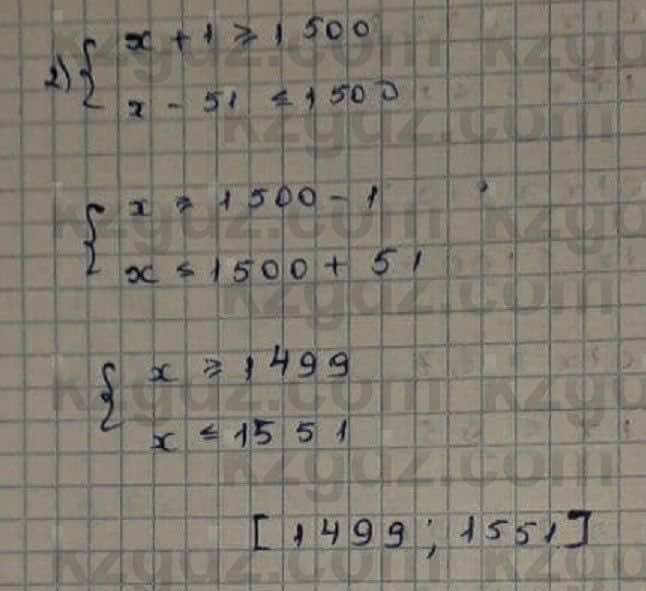 2) { x + 1 ≥ 1500
x - 51 ≤ 1500
{ x ≥ 1500 - 1
x ≤ 1500 + 51
{ x ≥ 1499
x ≤ 1551
[1499; 1551]
kzgdz.com